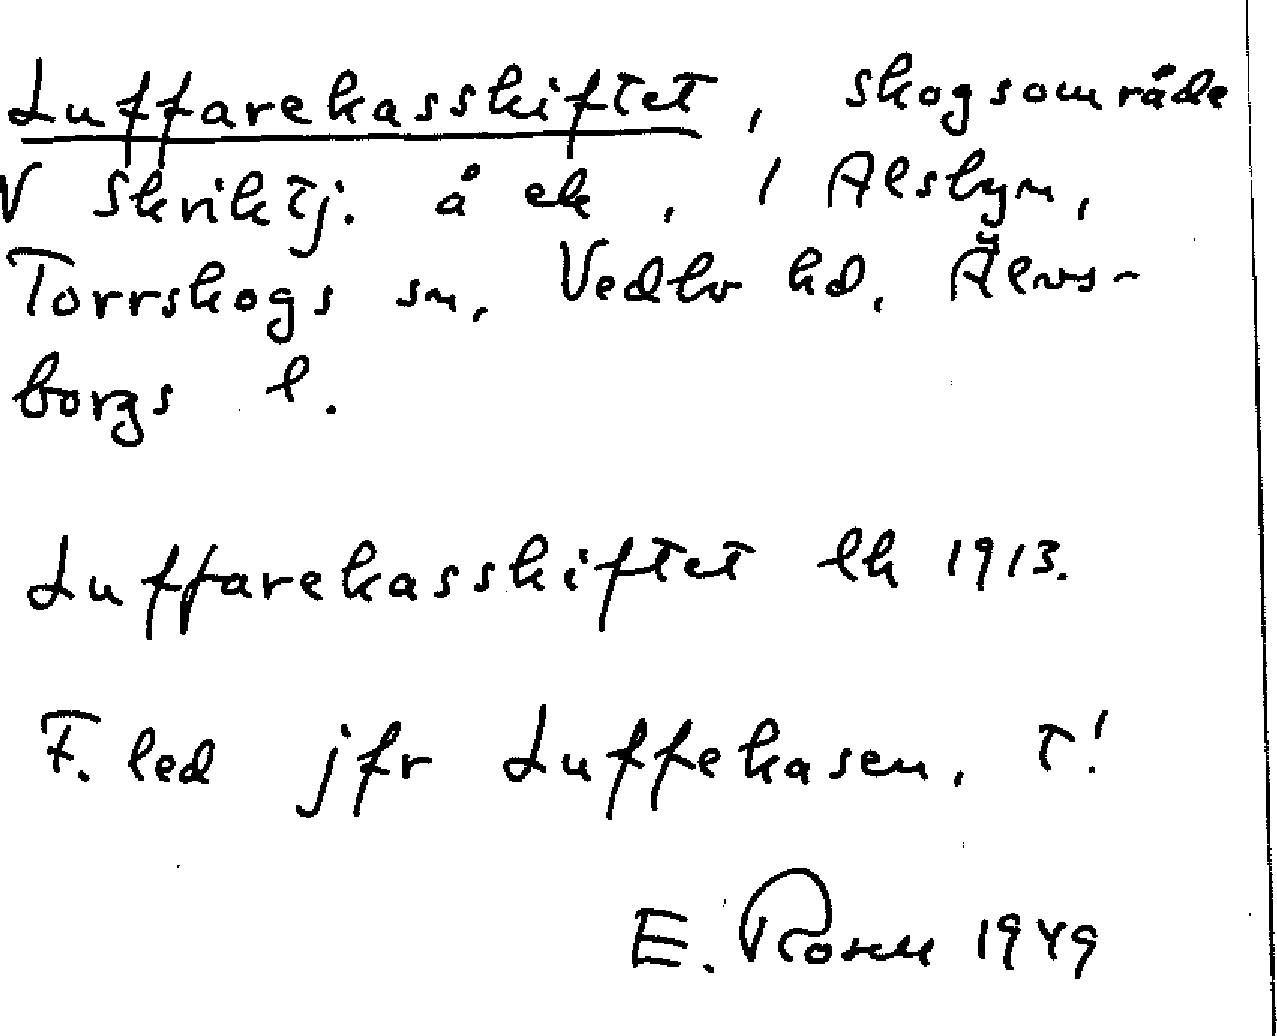 Luffarekasskiftet, skogsområde
V Skriktj. å ek, i Alsbyn,
Torrskogs sn, Vedbo hd, Älvs-
borgs l.
Luffarekasskiftet lh 1913.
F. led jfr Luffekasen, T!
E. Rosell 1949